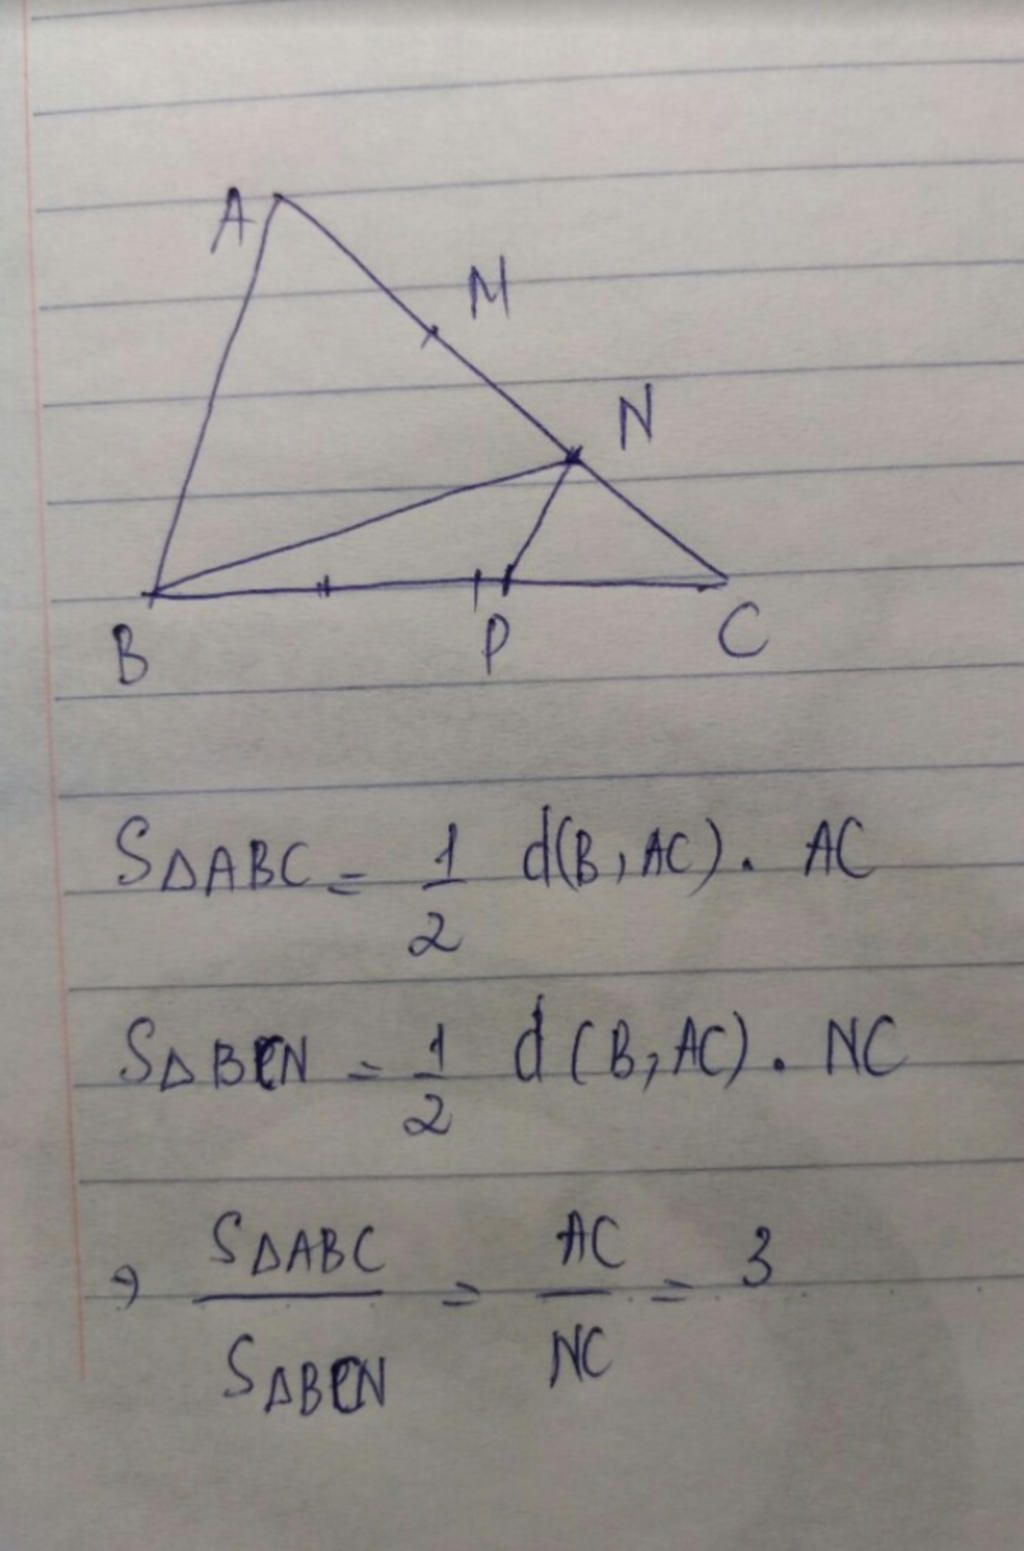 A
M
N
B P C
S△ABC = 1/2 d(B, AC). AC
S△BCN = 1/2 d(B, AC). NC
→ S△ABC / S△BCN = AC / NC = 3